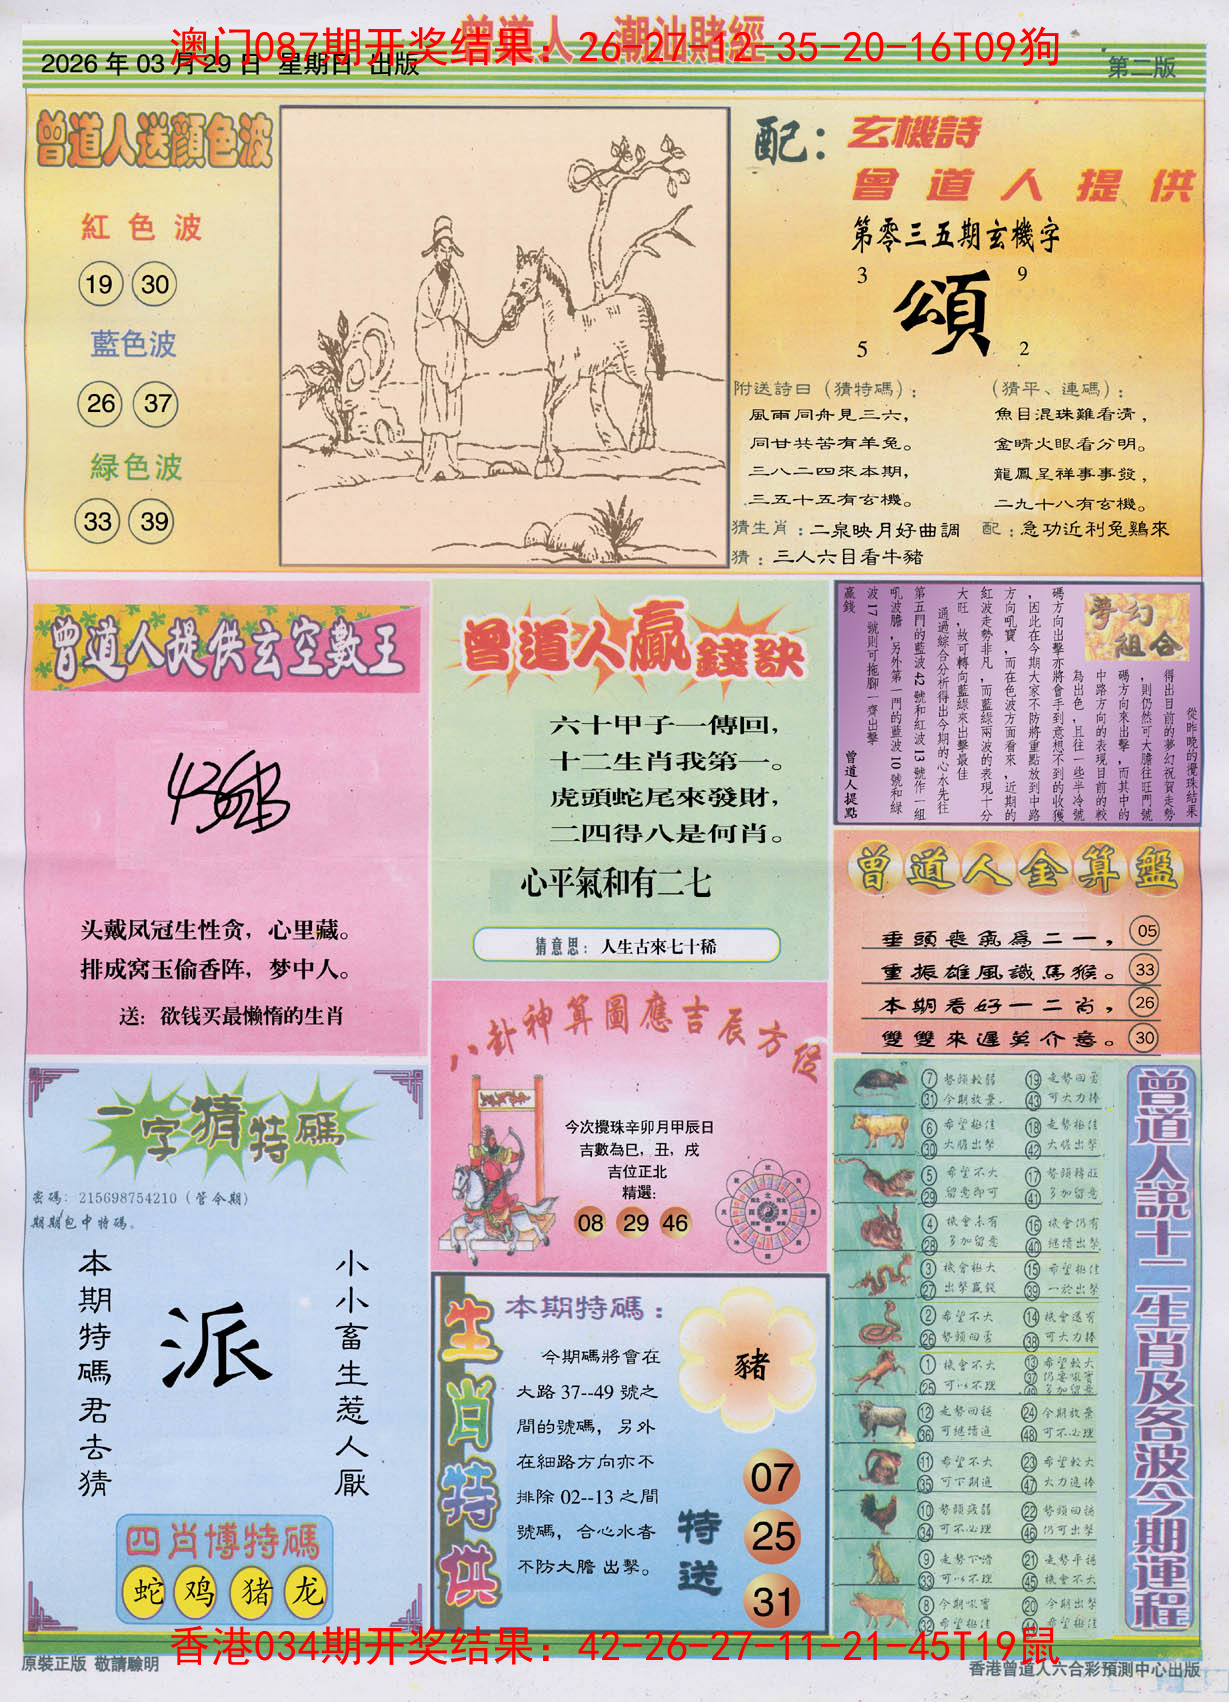 曾道人·潮汕賭經
澳门087期开奖结果：26-27-12-35-20-16T09狗
2026 年 03 月 29 日 星期日 出版
第二版
曾道人送顏色波
紅色波
19 30
藍色波
26 37
緑色波
33 39
配：
玄機詩
曾道人提供
第零三五期玄機字
3 9
頌
5 2
附送詩曰（猜特碼）：
風雨同舟見三六，
同甘共苦有羊兔。
三八二四來本期，
三五十五有玄機。
（猜平、連碼）：
魚目混珠難看清，
金睛火眼看分明。
龍鳳呈祥事事發，
二九十八有玄機。
猜生肖：二泉映月好曲調
配：急功近利兔鷄來
猜：三人六目看牛豬
曾道人提供玄空數王
头戴凤冠生性贪，心里藏。
排成窝玉偷香阵，梦中人。
送：欲钱买最懒惰的生肖
曾道人贏錢訣
六十甲子一傳回，
十二生肖我第一。
虎頭蛇尾來發財，
二四得八是何肖。
心平氣和有二七
猜意思：人生古來七十稀
夢幻
組合
從昨晚的攪珠結果
得出目前的夢幻祝賀走勢
，則仍然可大膽往旺門號
碼方向來出擊，而其中的
中路方向的表現目前的較
為出色，且往一些半冷號
碼方向出擊亦將會手到意想不到的收獲
，因此在今期大家不防將重點放到中路
方向吼寶，而在色波方面看來，近期的
紅波走勢非凡，而藍緑兩波的表現十分
大旺，故可轉向藍緑來出擊最佳
通過綜合分析得出今期的心水先往
第五門的藍波42號和紅波13號作一組
吼波膽，另外第一門的藍波10號和緑
波17號則可拖腳一齊出擊
贏錢
曾道人提點
曾道人金算盤
垂頭喪氣爲二一， 05
重振雄風識馬猴。 33
本期看好一二肖， 26
雙雙來遲莫介意。 30
八卦神算圖應吉辰方位
今次攪珠辛卯月甲辰日
吉數為巳，丑，戌
吉位正北
精選：
08 29 46
一字猜特碼
密碼：215698754210（管今期）
期期包中特碼。
本期特碼君去猜
派
小小畜生惹人厭
四肖博特碼
蛇 鸡 猪 龙
生肖特供
本期特碼：
今期碼將會在
大路 37--49 號之
間的號碼，另外
在細路方向亦不
排除 02--13 之間
號碼，合心水者
不防大膽 出擊。
豬
特送
07
25
31
曾道人説十二生肖及各波今期運程
7 勢頭較弱 19 走勢回勇
31 今期放棄 43 可大力捧
6 希望極佳 18 走勢極佳
30 大膽出擊 42 大膽出擊
5 希望不大 17 勢頭轉旺
29 留意即可 41 多加留意
4 機會未有 16 機會仍有
28 多加留意 40 繼續出擊
3 機會極大 15 希望極佳
27 出擊贏錢 39 一於出擊
2 希望不大 14 機會還有
26 勢頭回勇 38 可大力捧
1 機會不大 13 希望較大
25 可以不理 37 仍要吼實
49 多加留意
12 走勢回穩 24 今期放棄
36 可繼續追 48 可不必理
11 希望不大 23 希望較大
35 可下期追 47 大力追捧
10 勢頭疲弱 22 勢頭回穩
34 可不必理 46 仍可出擊
9 走勢下滑 21 走勢平穩
33 可以不理 45 機會不大
8 今期吼實 20 今期出擊
32 希望極佳 44 希望極佳
香港034期开奖结果：42-26-27-11-21-45T19鼠
原裝正版 敬請驗明
香港曾道人六合彩預測中心出版